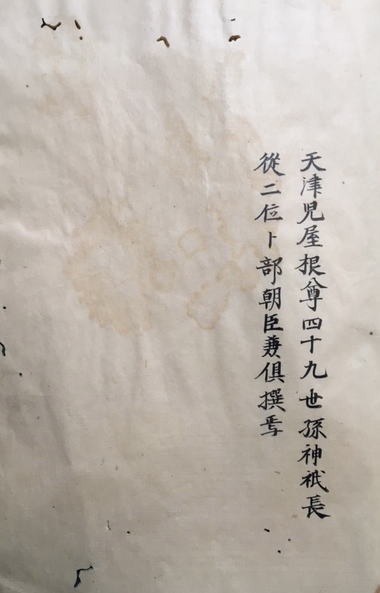 天津児屋根尊四十九世孫神祇長
從二位卜部朝臣兼倶撰焉